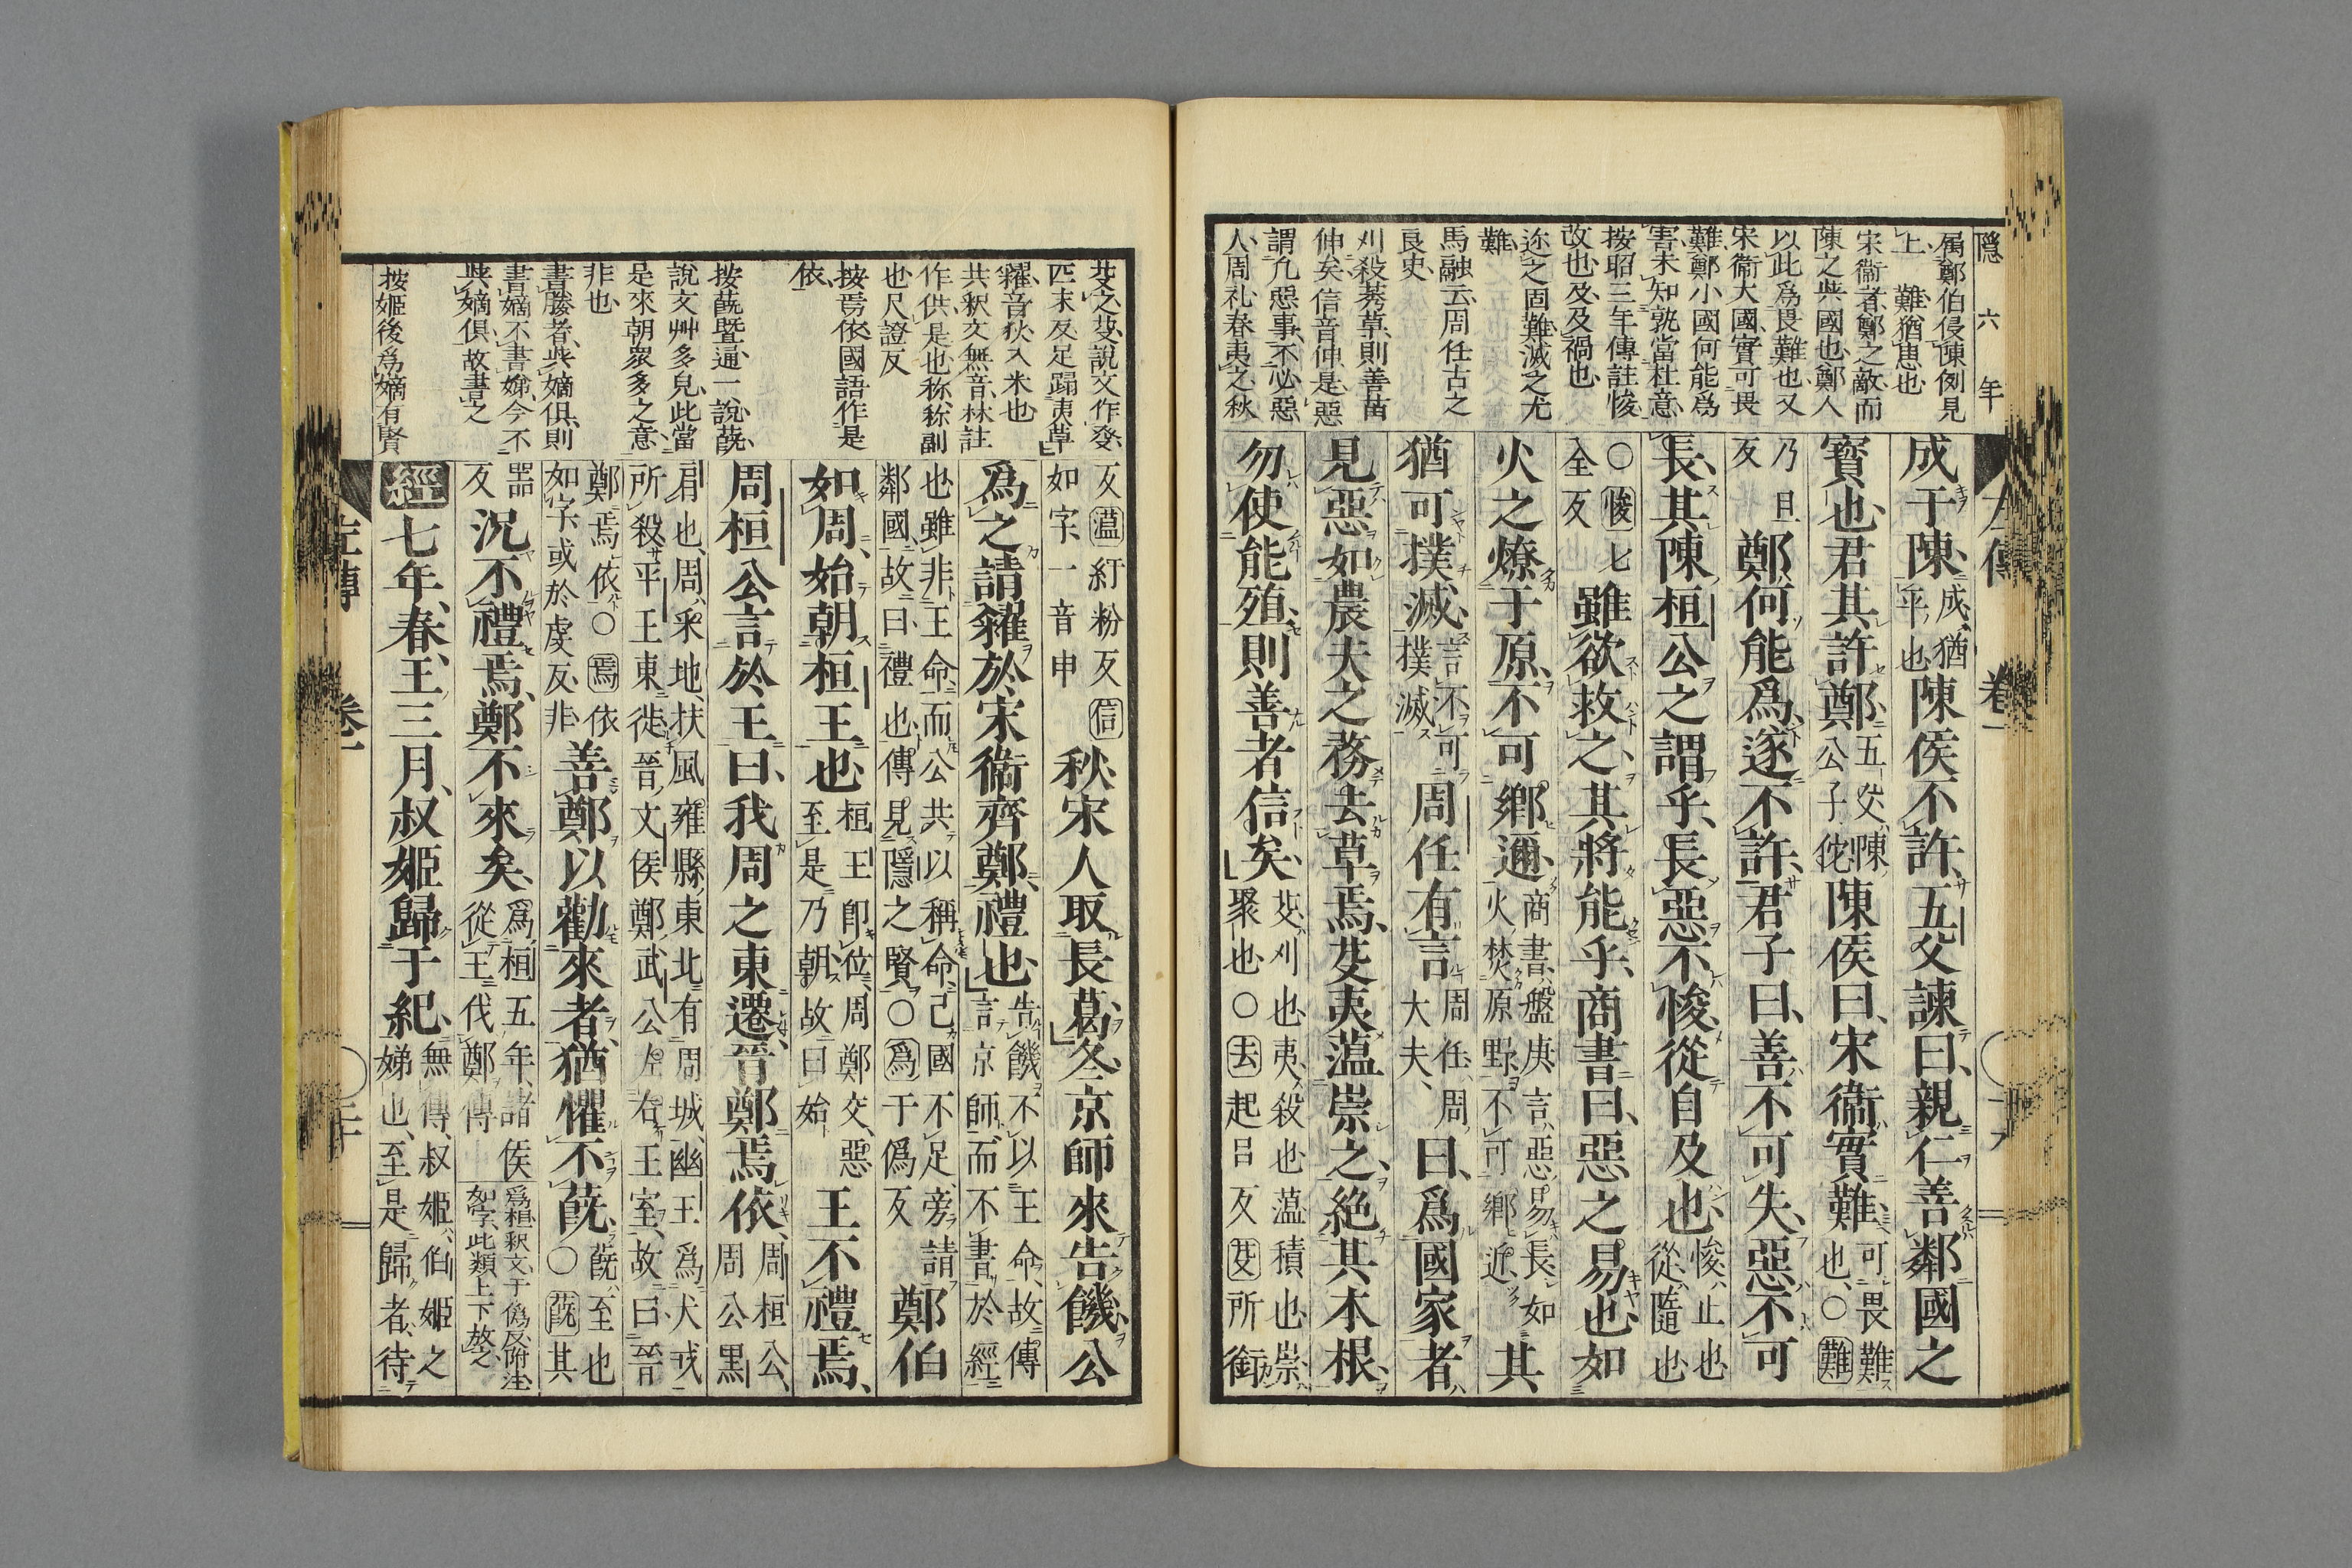 隱六年
屬鄭伯侵陳例見
上 難猶患也
宋衞者鄭之敵而
陳之與國也鄭人
以此爲畏難也又
宋衞大國實可畏
難鄭小國何能爲
害未知孰當杜意
按昭三年傳註悛
改也及及禍也
迩之固難滅之尤
難
馬融云周任古之
良史
刈殺莠草則善苗
伸矣信音伸是惡
謂凡惡事不必惡
人周礼春夷之秋
左傳 卷一
成于陳成猶平也陳侯不許五父諫曰親仁善鄰國之
寳也君其許鄭五父陳公子佗陳侯曰宋衞實難可畏難也○難
乃旦反鄭何能爲遂不許君子曰善不可失惡不可
長其陳桓公之謂乎長惡不悛從自及也悛止也從隨也
○悛七全反雖欲救之其將能乎商書曰惡之易也如
火之燎于原不可鄉邇商書盤庚言惡易長如火焚原野不可鄉近其
猶可撲滅言不可撲滅周任有言周任周大夫曰爲國家者
見惡如農夫之務去草焉芟夷薀崇之絶其本根
勿使能殖則善者信矣芟刈也夷殺也薀積也崇聚也○去起呂反芟所銜
芟之芟說文作癹
匹末反足蹋夷草
糴音狄入米也
共釈文無音林註
作供是也称称副
也尺證反
按焉依國語作是
依
按蔇曁通一說蔇
說文艸多皃此當
是來朝衆多之意
非也
書媵者與嫡俱則
書嫡不書娣今不
與嫡俱故書之
按姬後爲嫡有賢
反薀紆粉反信如字一音申秋宋人取長葛冬京師來告饑公
爲之請糴於宋衞齊鄭禮也告饑不以王命故傳言京師而不書於經
也雖非王命而公共以稱命己國不足旁請鄰國故曰禮也傳見隱之賢○爲于僞反鄭伯
如周始朝桓王也桓王即位周鄭交惡至是乃朝故曰始王不禮焉
周桓公言於王曰我周之東遷晉鄭焉依周桓公周公黑
肩也周采地扶風雍縣東北有周城幽王爲犬戎所殺平王東徙晉文侯鄭武公左右王室故曰晉
鄭焉依○焉依如字或於虔反非善鄭以勸來者猶懼不蔇蔇至也○蔇其
器反況不禮焉鄭不來矣爲桓五年諸侯從王伐鄭傳爲桓釈文于僞反附注如字此類上下放之
經七年春王三月叔姬歸于紀無傳叔姬伯姬之娣也至是歸者待
左傳 卷一 二十